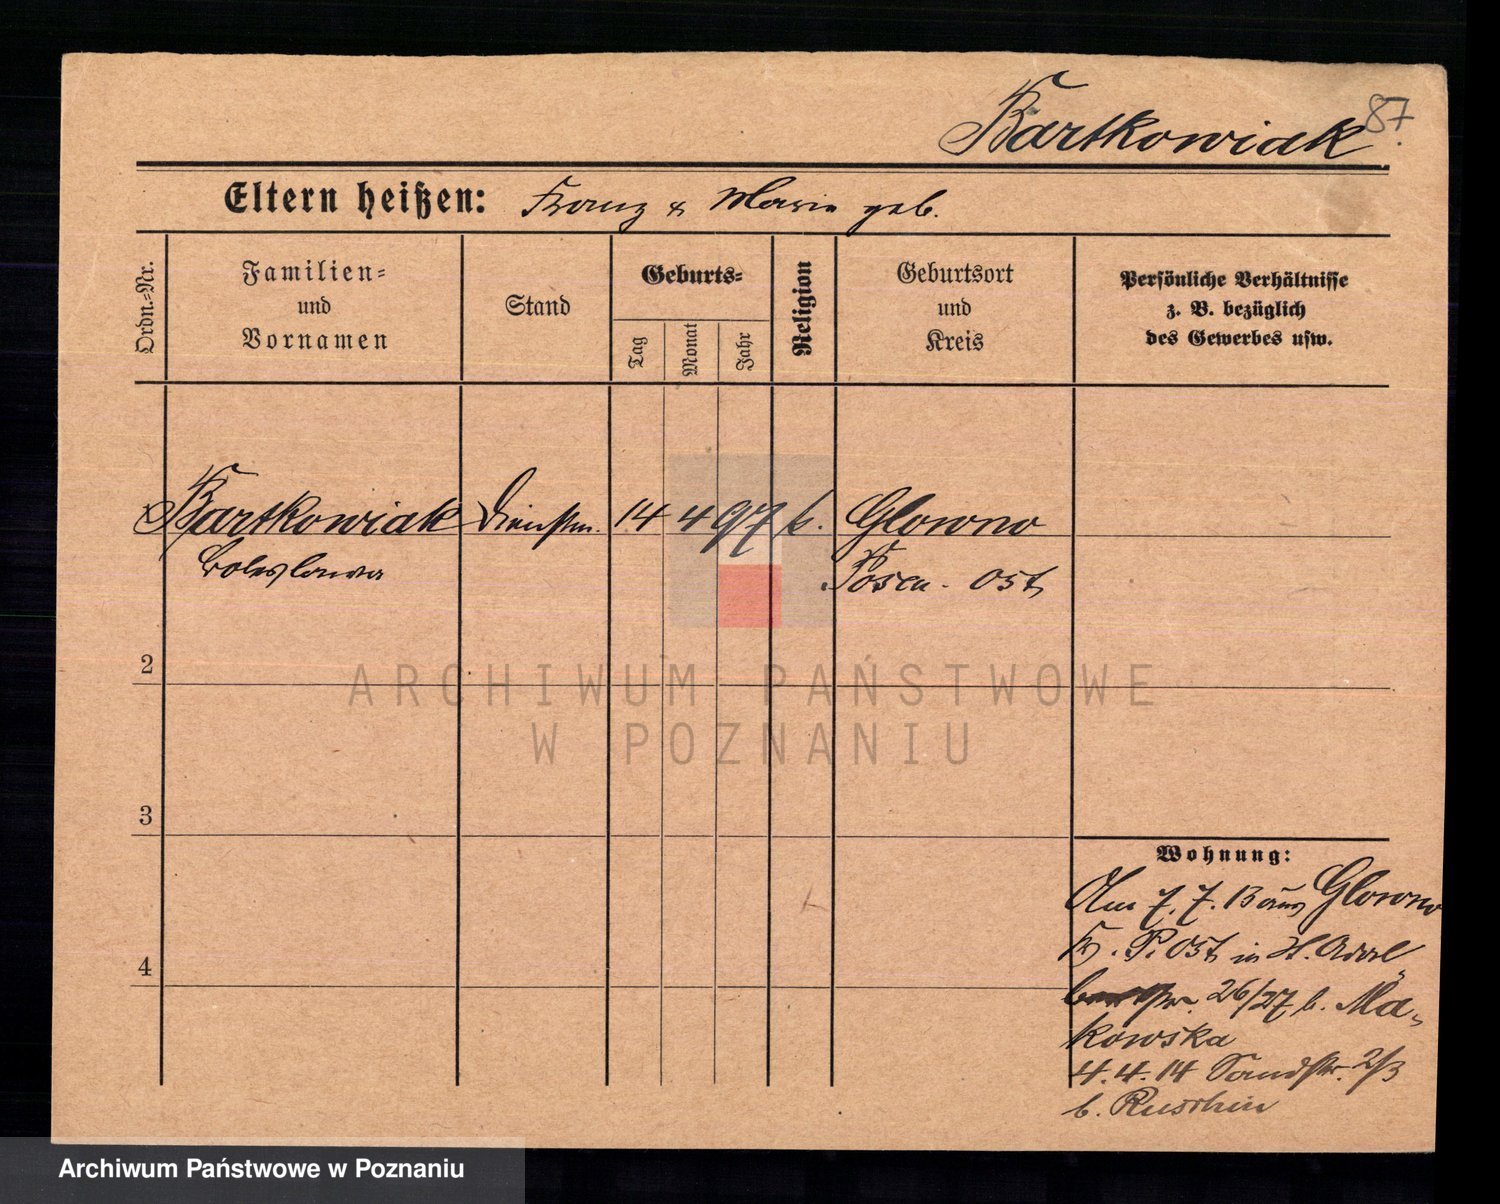 Bartkowiak
87.
Eltern heißen: Franz & Marie geb.
Ordn.-Nr.
Familien-
und
Vornamen
Stand
Geburts-
Tag
Monat
Jahr
Religion
Geburtsort
und
Kreis
Persönliche Verhältnisse
z. B. bezüglich
des Gewerbes usw.
Bartkowiak Dienstm. 14 4 97 k. Glowno
Boleslawa Posen - Ost
2
ARCHIWUM PAŃSTWOWE
W POZNANIU
3
Wohnung:
Am 7. 7. 13 aus Glowno
Kr. P. Ost in H. Adal
26/27 b. Ma-
kowska
4. 4. 14 Sandstr. 2/3
b.
4
Archiwum Państwowe w Poznaniu